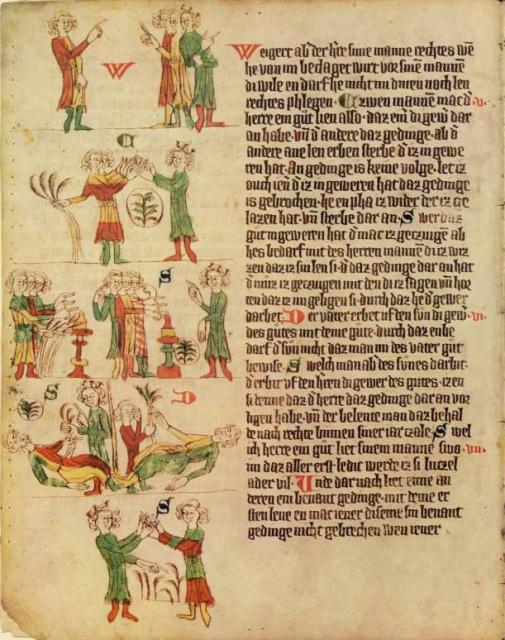 W
C
S
S
D
S
Weigert ab der hre sime manne rechtes we
he von im bedaget wirt vor sinen mannen
di wile en darf he nicht im dinen noch len
rechtes phlegen. Czwen mannen mac d' v.
herre ein gut lien also. daz ein di gewer dar
an habe. vnd d' andere daz gedinge. ab d'
andere ane len erben sterbe d' iz in gewe
ren hat. An gedinge is keine volge. let iz
ouch ien d' iz in geweren hat daz gedinge
is gebrochen. he en pha iz wider der iz ge
lazen hat. vnd sterbe dar an. Swer daz
gut in geweren hat d' mac iz geczugen ab
hes bedarf mit des herren mannen di iz wiz
zen daz iz sin len si. d' daz gedinge dar an hat
d' muz iz geczugen mit den di iz sagen vnd hor
ten daz iz im geligen si. durch daz he d' gewer
darbet. Der vater erbet uf den son di gewer vi.
des gutes mit deme gute. durch daz enbe
darf d' son nicht daz man im des vater gut
bewise. Swelch man ab des sones darbit.
d' erbit uf den hren di gewer des gutes. izen
si denne daz d' herre daz gedinge dar an vor
ligen habe. vnd der belente man daz behal
de nach rechte binnen siner iarczale. Swel
ich herre ein gut liet sinem manne swo vii.
im daz aller erst ledic werde iz si luczel
ader vil. Unde dar nach liet eime an
deren ein benant gedinge. mit deme er
sten lene en mac iener diseme sin benant
gedinge nicht gebrechen wen iener